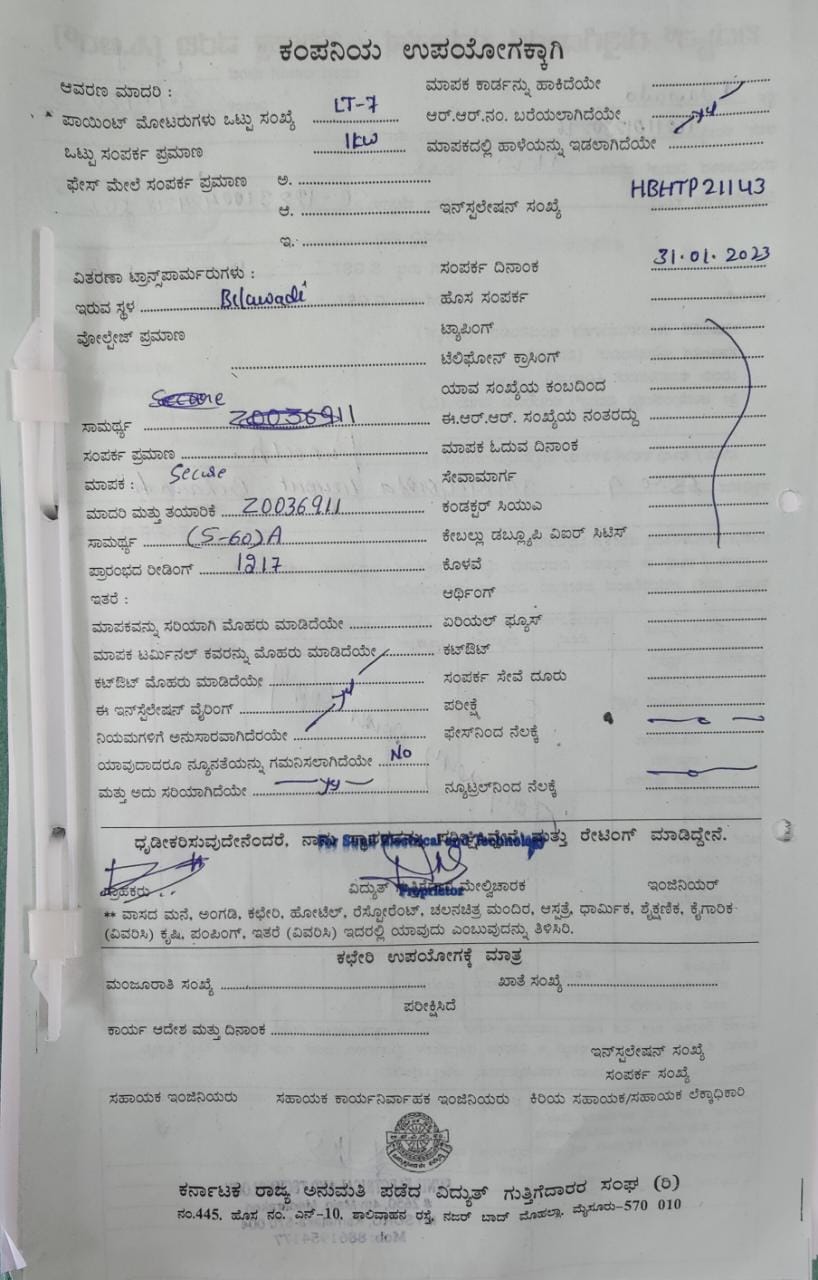 ಕಂಪನಿಯ ಉಪಯೋಗಕ್ಕಾಗಿ
ಆವರಣ ಮಾದರಿ : ಮಾಪಕ ಕಾರ್ಡನ್ನು ಹಾಕಿದೆಯೇ
ಪಾಯಿಂಟ್ ಮೋಟರುಗಳು ಒಟ್ಟು ಸಂಖ್ಯೆ LT-7 ಆರ್.ಆರ್.ನಂ. ಬರೆಯಲಾಗಿದೆಯೇ
ಒಟ್ಟು ಸಂಪರ್ಕ ಪ್ರಮಾಣ 1kw ಮಾಪಕದಲ್ಲಿ ಹಾಳೆಯನ್ನು ಇಡಲಾಗಿದೆಯೇ
ಫೇಸ್ ಮೇಲೆ ಸಂಪರ್ಕ ಪ್ರಮಾಣ ಅ.
ಆ. ಇನ್‌ಸ್ಟಲೇಷನ್ ಸಂಖ್ಯೆ HBHTP21143
ಇ.
ವಿತರಣಾ ಟ್ರಾನ್ಸ್‌ಫಾರ್ಮರುಗಳು : ಸಂಪರ್ಕ ದಿನಾಂಕ 31.01.2023
ಇರುವ ಸ್ಥಳ Belawadi ಹೊಸ ಸಂಪರ್ಕ
ವೋಲ್ಟೇಜ್ ಪ್ರಮಾಣ ಟ್ಯಾಪಿಂಗ್
ಟೆಲಿಫೋನ್ ಕ್ರಾಸಿಂಗ್
ಯಾವ ಸಂಖ್ಯೆಯ ಕಂಬದಿಂದ
ಸಾಮರ್ಥ್ಯ Z0036911 ಈ.ಆರ್.ಆರ್. ಸಂಖ್ಯೆಯ ನಂತರದ್ದು
ಸಂಪರ್ಕ ಪ್ರಮಾಣ ಮಾಪಕ ಓದುವ ದಿನಾಂಕ
ಮಾಪಕ : Secure ಸೇವಾಮಾರ್ಗ
ಮಾದರಿ ಮತ್ತು ತಯಾರಿಕೆ Z0036911 ಕಂಡಕ್ಟರ್ ಸಿಯುಎ
ಸಾಮರ್ಥ್ಯ (5-60)A ಕೇಬಲ್ಲು ಡಬ್ಲ್ಯೂಪಿ ವಿಐರ್ ಸಿಟಿಸ್
ಪ್ರಾರಂಭದ ರೀಡಿಂಗ್ 1217 ಕೊಳವೆ
ಇತರೆ : ಆರ್ಥಿಂಗ್
ಮಾಪಕವನ್ನು ಸರಿಯಾಗಿ ಮೊಹರು ಮಾಡಿದೆಯೇ ಏರಿಯಲ್ ಫ್ಯೂಸ್
ಮಾಪಕ ಟರ್ಮಿನಲ್ ಕವರನ್ನು ಮೊಹರು ಮಾಡಿದೆಯೇ ಕಟ್‌ಔಟ್
ಕಟ್‌ಔಟ್ ಮೊಹರು ಮಾಡಿದೆಯೇ ಸಂಪರ್ಕ ಸೇವೆ ದೂರು
ಈ ಇನ್‌ಸ್ಟೆಲೇಷನ್ ವೈರಿಂಗ್ ಪರೀಕ್ಷೆ
ನಿಯಮಗಳಿಗೆ ಅನುಸಾರವಾಗಿದೆರಯೇ ಫೇಸ್‌ನಿಂದ ನೆಲಕ್ಕೆ
ಯಾವುದಾದರೂ ನ್ಯೂನತೆಯನ್ನು ಗಮನಿಸಲಾಗಿದೆಯೇ No
ಮತ್ತು ಅದು ಸರಿಯಾಗಿದೆಯೇ ನ್ಯೂಟ್ರಲ್‌ನಿಂದ ನೆಲಕ್ಕೆ
ಧೃಡೀಕರಿಸುವುದೇನೆಂದರೆ, ನಾನು ಮತ್ತು ರೇಟಿಂಗ್ ಮಾಡಿದ್ದೇನೆ.
Electrical and Technology
ಗ್ರಾಹಕರು ವಿದ್ಯುತ್ ಮೇಲ್ವಿಚಾರಕ ಇಂಜಿನಿಯರ್
Proprietor
** ವಾಸದ ಮನೆ, ಅಂಗಡಿ, ಕಛೇರಿ, ಹೋಟೆಲ್, ರೆಸ್ಟೋರೆಂಟ್, ಚಲನಚಿತ್ರ ಮಂದಿರ, ಆಸ್ಪತ್ರೆ, ಧಾರ್ಮಿಕ, ಶೈಕ್ಷಣಿಕ, ಕೈಗಾರಿಕ
(ವಿವರಿಸಿ) ಕೃಷಿ, ಪಂಪಿಂಗ್, ಇತರೆ (ವಿವರಿಸಿ) ಇದರಲ್ಲಿ ಯಾವುದು ಎಂಬುವುದನ್ನು ತಿಳಿಸಿರಿ.
ಕಛೇರಿ ಉಪಯೋಗಕ್ಕೆ ಮಾತ್ರ
ಮಂಜೂರಾತಿ ಸಂಖ್ಯೆ ಖಾತೆ ಸಂಖ್ಯೆ
ಪರೀಕ್ಷಿಸಿದೆ
ಕಾರ್ಯ ಆದೇಶ ಮತ್ತು ದಿನಾಂಕ
ಇನ್‌ಸ್ಟಲೇಷನ್ ಸಂಖ್ಯೆ
ಸಂಪರ್ಕ ಸಂಖ್ಯೆ
ಸಹಾಯಕ ಇಂಜಿನಿಯರು ಸಹಾಯಕ ಕಾರ್ಯನಿರ್ವಾಹಕ ಇಂಜಿನಿಯರು ಕಿರಿಯ ಸಹಾಯಕ/ಸಹಾಯಕ ಲೆಕ್ಕಾಧಿಕಾರಿ
ಕರ್ನಾಟಕ ರಾಜ್ಯ ಅನುಮತಿ ಪಡೆದ ವಿದ್ಯುತ್ ಗುತ್ತಿಗೆದಾರರ ಸಂಘ (ರಿ)
ನಂ.445, ಹೊಸ ನಂ. ಎನ್-10, ಶಾಲಿವಾಹನ ರಸ್ತೆ, ನಜರ್ ಬಾದ್ ಮೊಹಲ್ಲಾ, ಮೈಸೂರು-570 010